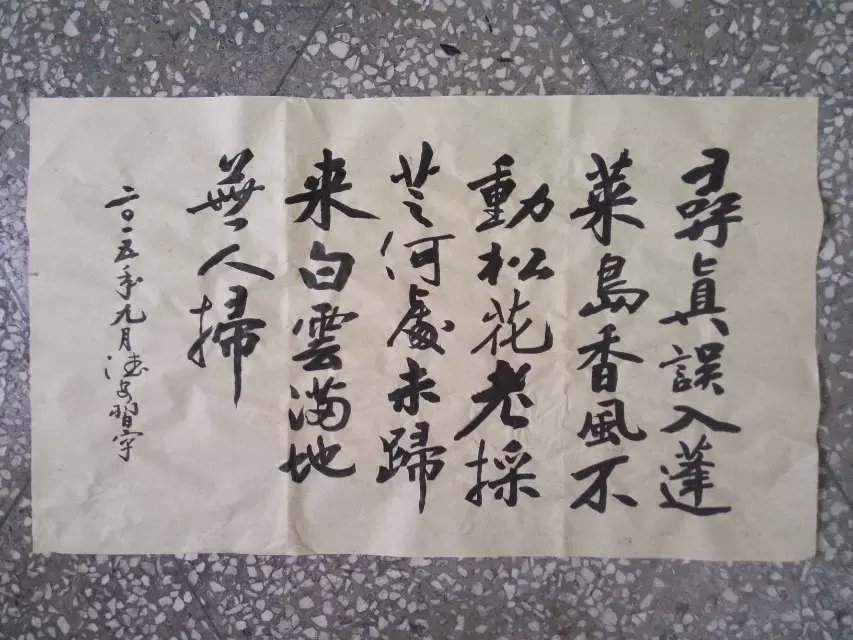 尋眞誤入蓬
莱島香風不
動松花老採
芝何處未歸
来白雲满地
無人掃
二〇一五年九月習字